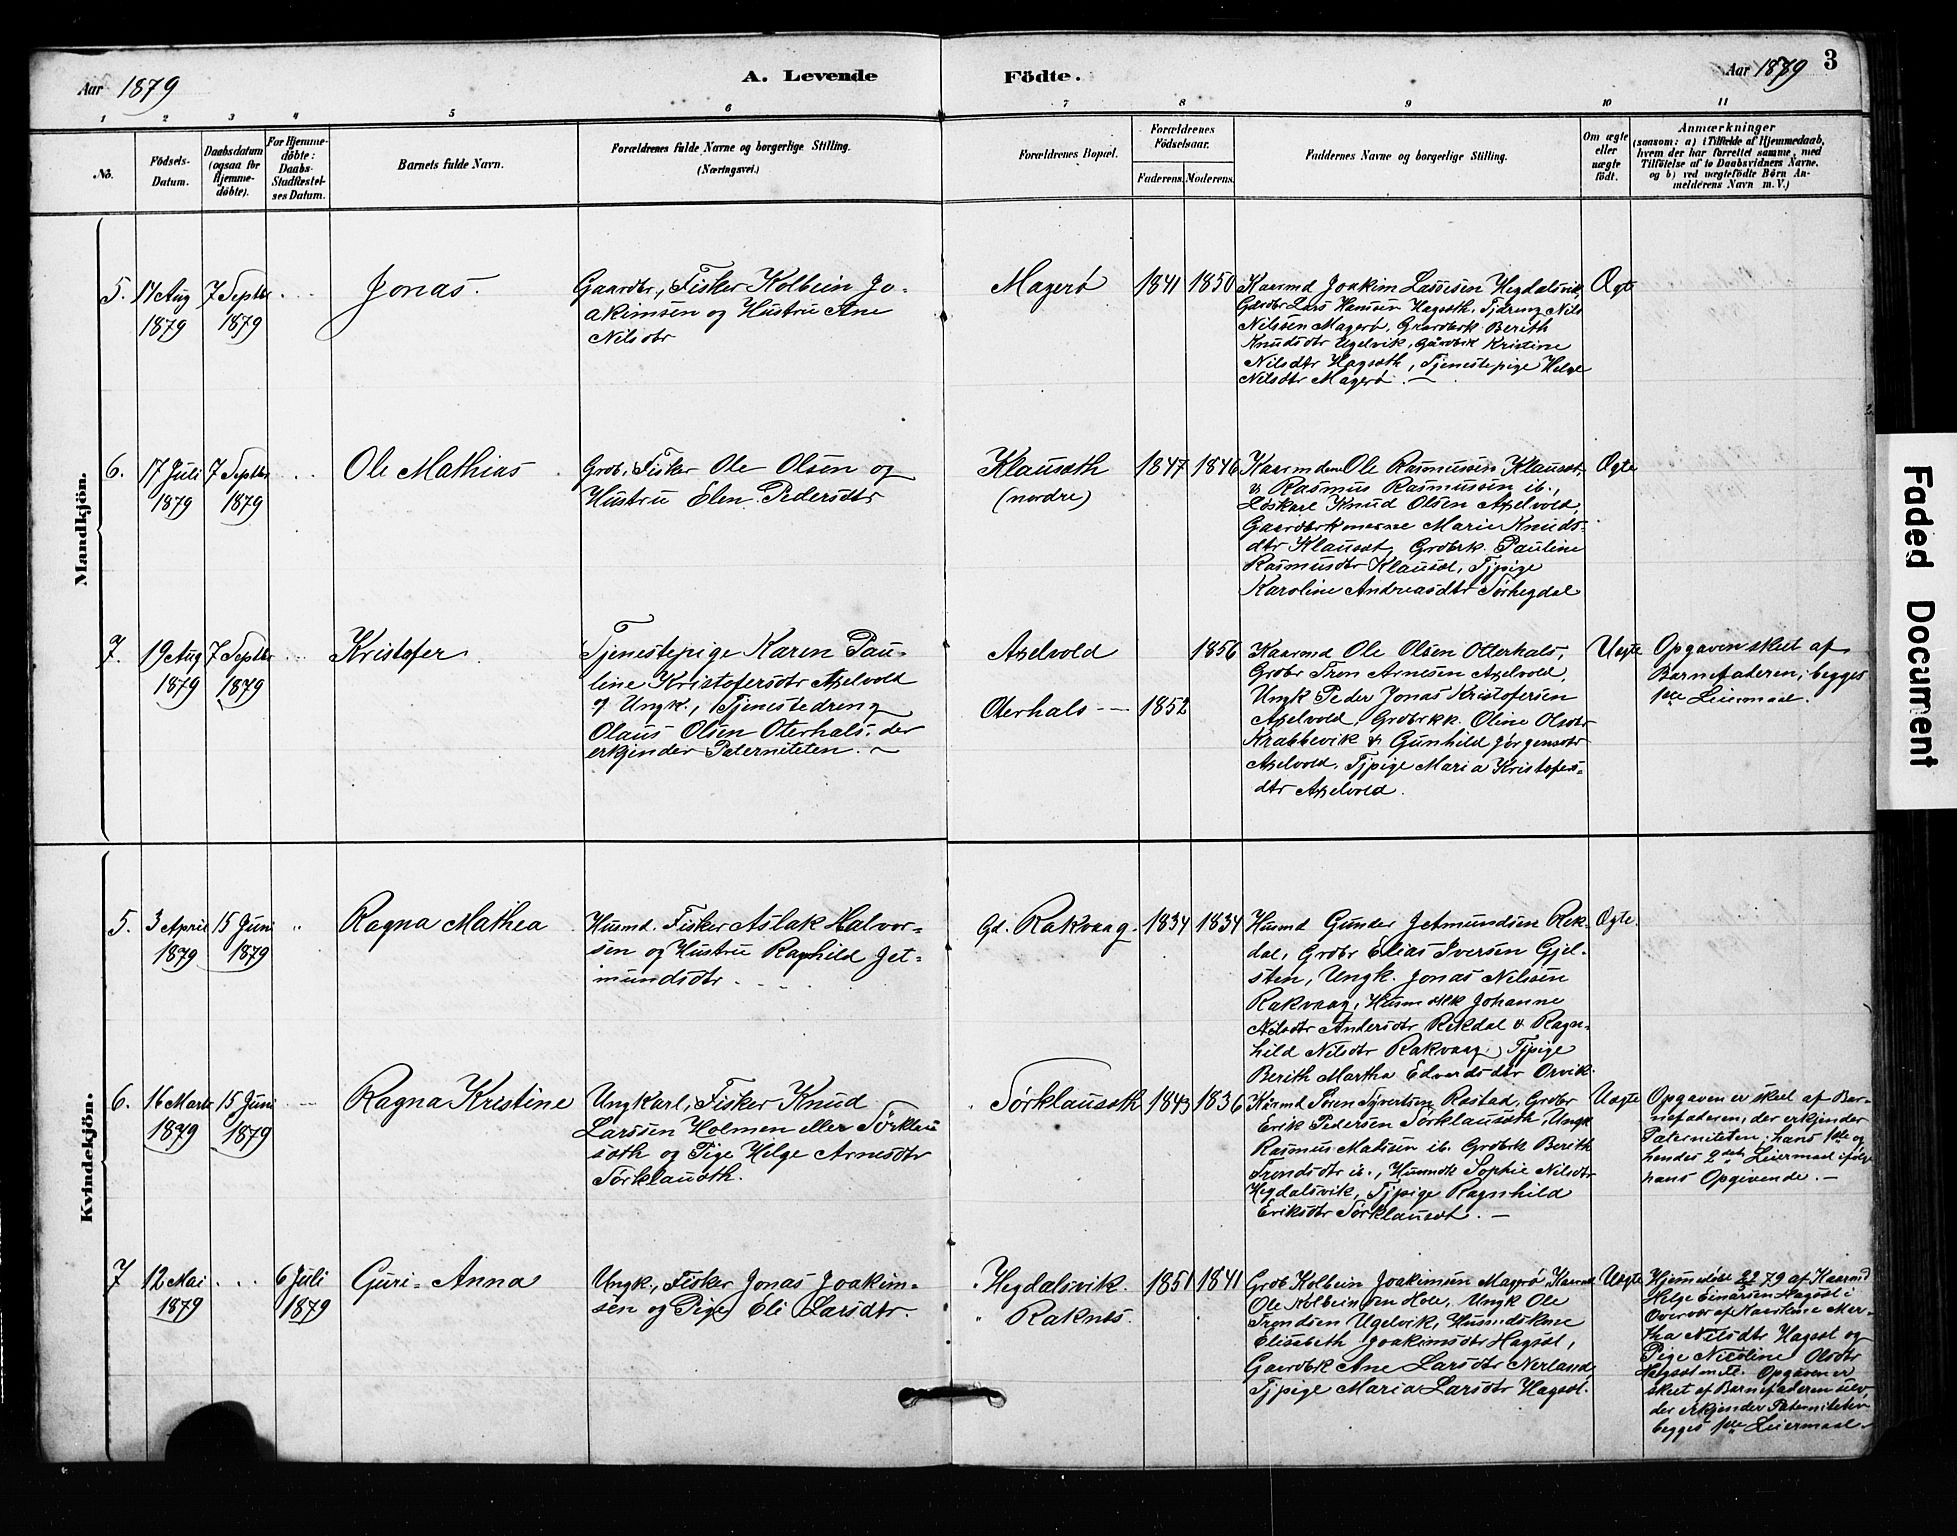 Aar 1879
A. Levende
Födte.
Aar 1879
3
1 2 3 4 5 6 7 8 9 10 11
No.
Födsels-
Datum.
Daabsdatum
(ogsaa for
Hjemme-
döbte).
For Hjemme-
döbte:
Daabs-
Stadfæstel-
ses Datum.
Barnets fulde Navn.
Forældrenes fulde Navne og borgerlige Stilling.
(Næringsvei.)
Forældrenes Bopæl.
Forældrenes
Födselsaar.
Faderens. Moderens.
Faddernes Navne og borgerlige Stilling.
Om ægte
eller
uægte
födt.
Anmærkninger
(saasom: a) i Tilfælde af Hjemmedaab,
hvem der har forrettet samme, med
Tilföielse af to Daabsvidners Navne,
og b) ved uægtefödte Börn An-
melderens Navn m. V.)
Mandkjön.
5.
17 Aug
1879
7 Septbr
1879
Jonas.
Gaardbr., Fisker Kolbein Jo-
akimsen og Hustru Ane
Nilsdtr
Magerø
1841
1850
Kaarmd Joakim Lassesen Hegdalsvik,
Gdsbr Lars Hansen Hagsæth, Tjdreng Nils
Nilssen Magerø, Gaardbrk. Berith
Knudsdtr Ugelvik, Gårdbrk Kristine
Nilsdtr Hagsæth, Tjenestepige Helge
Nilsdtr Magerø. —
Ægte
6.
17 Juli
1879
7 Septbr
1879
Ole Mathias
Grdb. Fisker Ole Olsen og
Hustru Elen Pedersdtr
Klausæth
(nordre)
1847
1846
Kaarmdene Ole Rasmussen Klausæt,
& Rasmus Rasmussen ib.,
Løskarl Knud Olsen Axelvold,
Gaardbrkonerne Marie Knuds-
dtr Klausæt, Grdbrk. Pauline
Rasmusdtr Klausæt, Tjpige
Karoline Andreasdtr Sørhegdal
Ægte
7.
19 Aug
1879
7 Septbr
1879
Kristofer
Tjenestepige Karen Pau-
line Kristofersdtr Axelvold
og Ungk., Tjenestedreng
Olaus Olsen Oterhals, der
erkjender Paterniteten. ~
Axelvold
Oterhals —
1852
1856
Kaarmd Ole Olsen Otterhals,
Grdbr Tron Arnesen Axelvold,
Ungk Peder Jonas Kristofersen
Axelvold, Grdbrkk. Oline Olsdtr
Krabbevik & Gunhild Jørgensdtr
Axelvold, Tjpige Maria Kristofers-
dtr Axelvold.
Uægte
Opgaven skeet af
Barnefaderen; begges
1ste Leiermaal.
Kvindekjön.
5.
3 April
1879
15 Juni
1879
Ragna Mathea
Husmd. Fisker Aslak Halvor-
sen og Hustru Ragnhild Jet-
mundsdtr
Gd. Rakvaag.
1834
1834
Husmd Gunder Jetmundsen Rek-
dal, Grdbr Elias Iversen Gjel-
sten, Ungk. Jonas Nilsen
Rakvaag, Husmdkk Johanne
Nilsdtr Andersdtr Rekdal & Ragn-
hild Nilsdtr Rakvaag, Tjpige
Berith Martha Edvardsdtr Orvik
Ægte.
6.
16 Marts
1879
15 Juni
1879
Ragna Kristine
Ungkarl, Fisker Knud
Larssen Holmen eller Sørklau
sæth og Pige Helge Arnesdtr
Sørklausæth.
Sørklausæth
1843
1836
Kårmd Søren Syvertsen Røstad, Grdbr
Erik Pedersen Sørklausæth, Ungk
Rasmus Matisen ib. Grdbrk Berith
Trondsdtr ib., Husmdk Sophie Nilsdtr
Hegdalsvik, Tjpige Ragnhild
Eriksdtr Sørklausæt. —
Uægte
Opgaven er skeet af Bar-
nefaderen, der erkjender
Paterniteten; hans 1ste og
hendes 2det Leiermaal ifølge
hans Opgivende. —
7
12 Mai
1879
6 Juli
1879
Guri-Anna
Ungk., Fisker Jonas Joakim-
sen og Pige Eli Larsdtr.
Hegdalsvik.
" Raknes.
1851
1841
Grdb Kolbein Joakimsen Magerø, Kaarmd
Ole Kolbeinsen Hole, Ungk Ole
Trondsen Ugelvik, Husmdskone
Elisabeth Joakimsdtr Hagsæt,
Gaardbrk Ane Larsdtr Nerland,
Tjpige Maria Larsdtr Hagsæt.
Uægte
Hjemmedøbt 79 af Kaarmd
Helge Einarsen Hagsæt i
Overvær af Mar-
tha Nilsdtr Hagsæt og
Pige Nicoline Olsdtr
Opgaven er
skeet af Barnefaderen selv,
der erkjender Paterniteten
begges 1ste Leiermaal
Faded Document